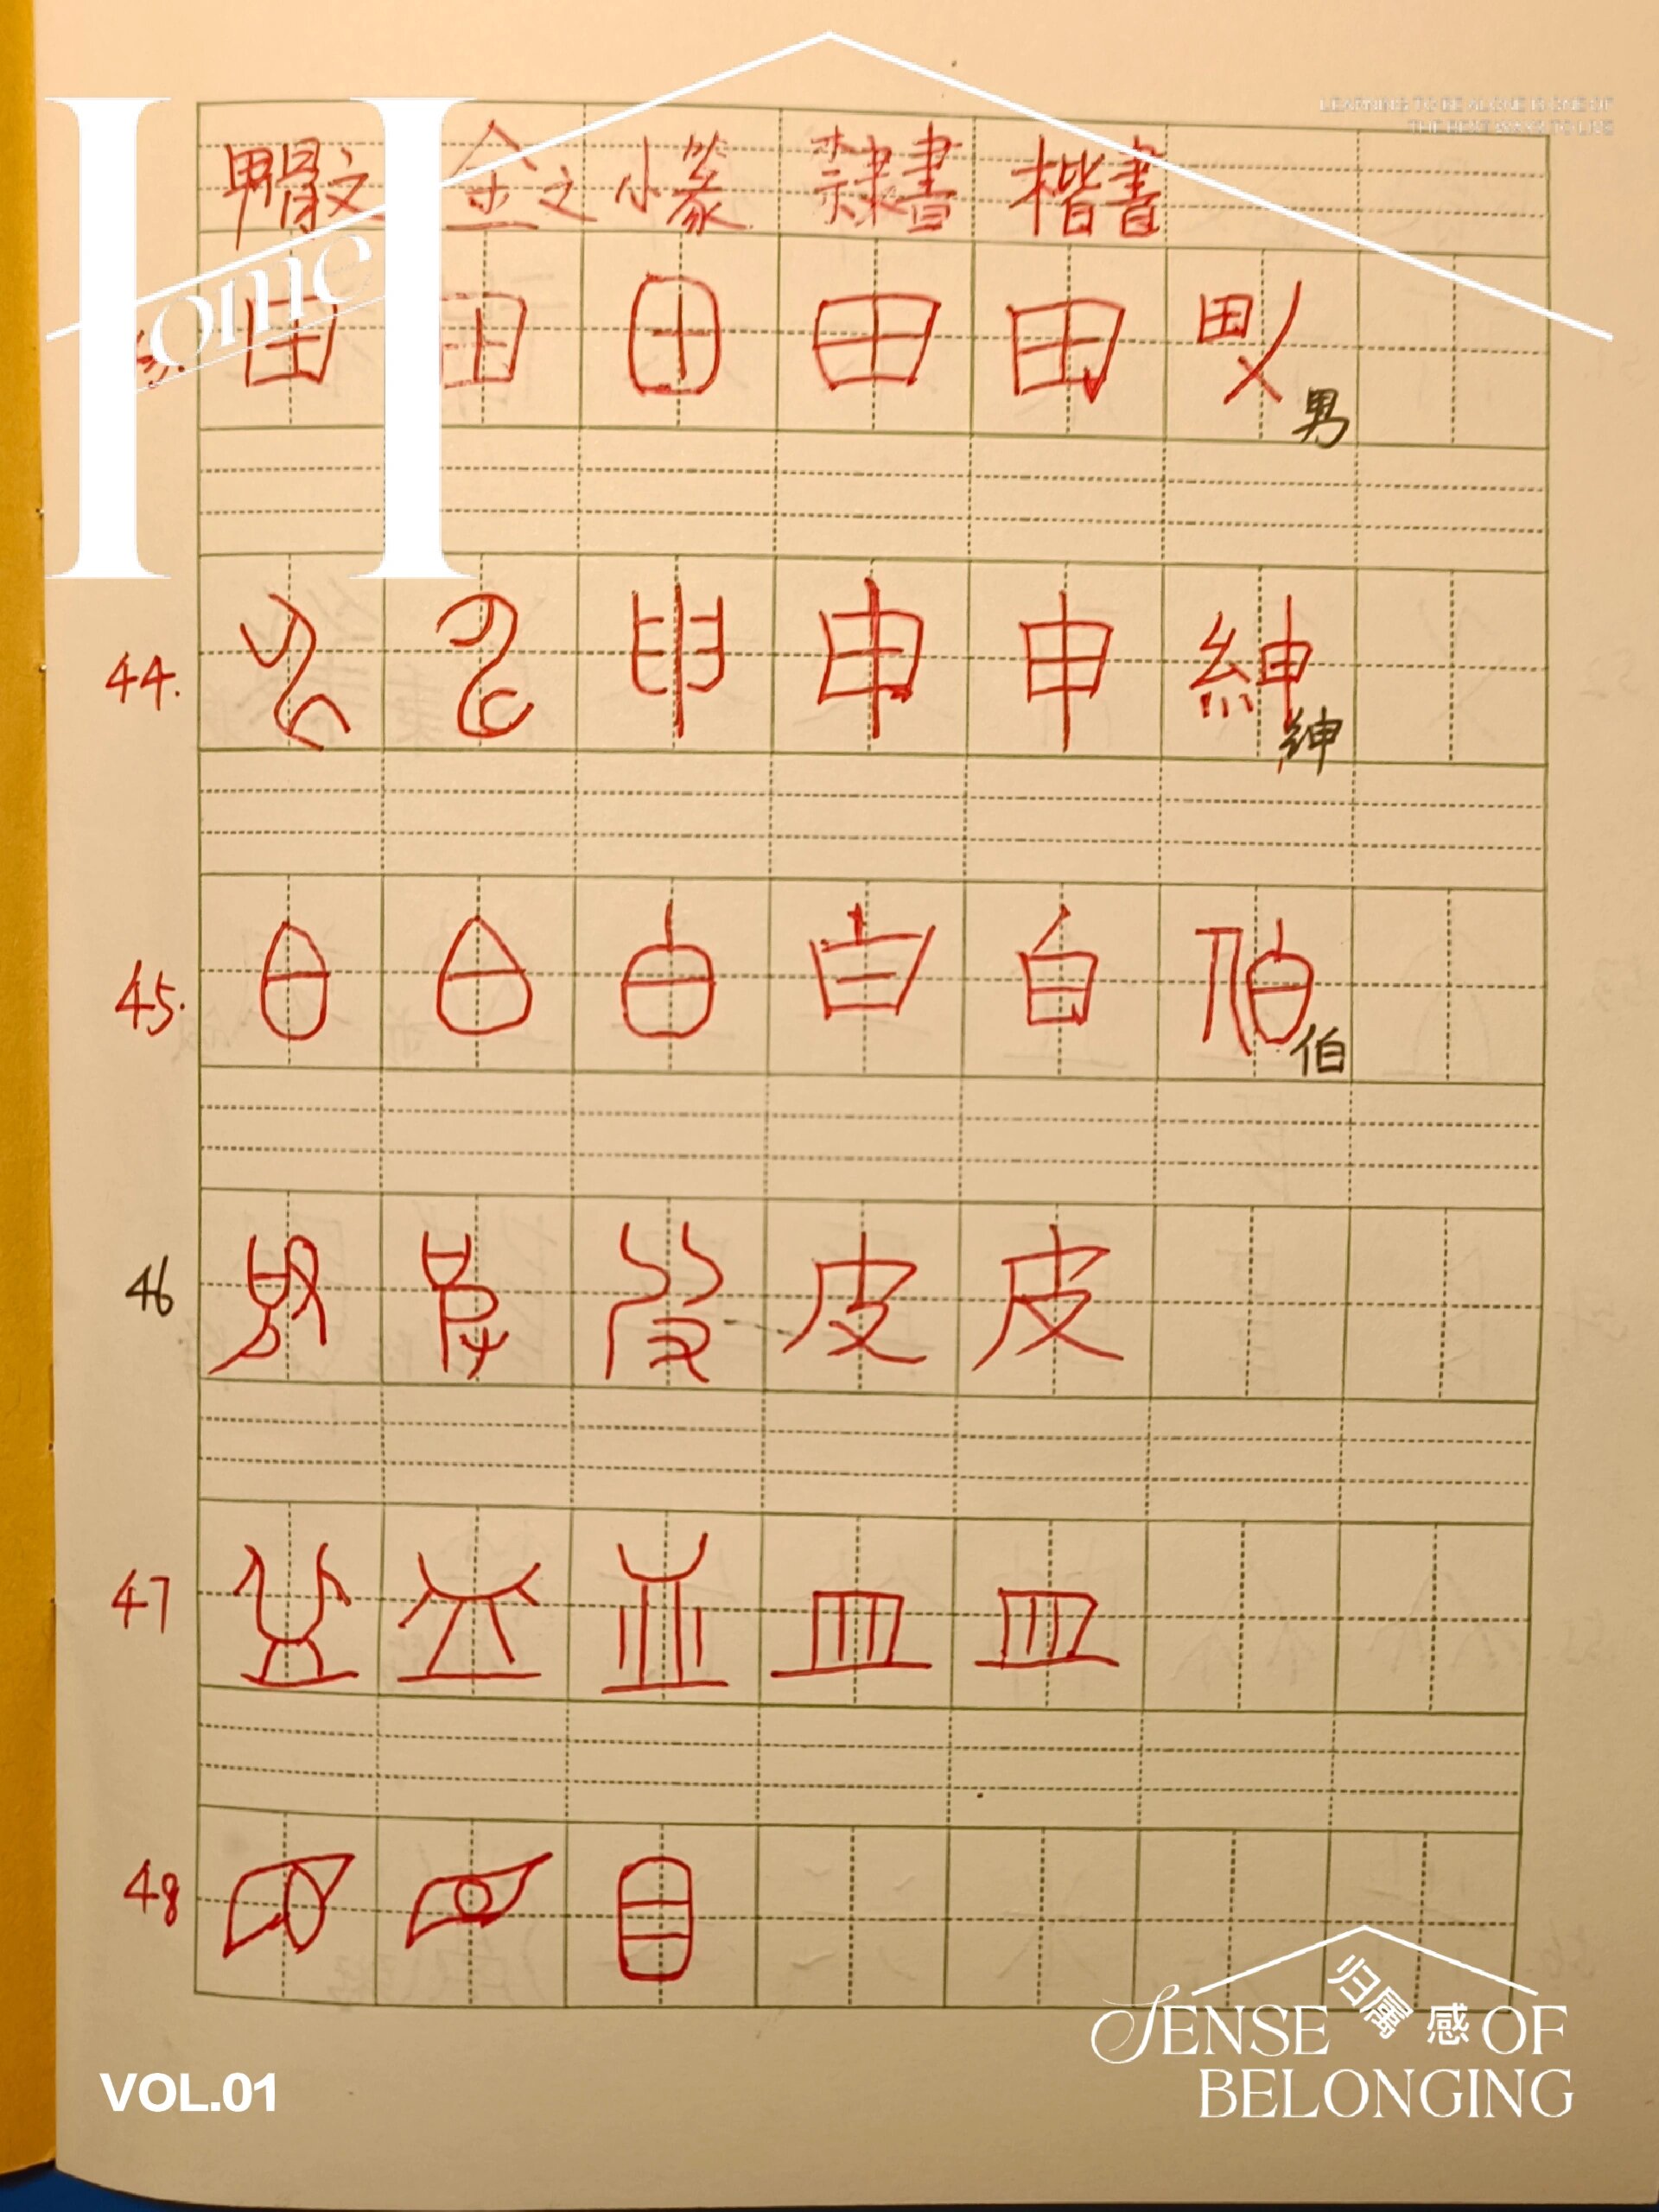 LEARNING TO BE ALONE IS ONE OF
THE BEST WAYS TO LIVE
Home
甲骨文 金文 小篆 隸書 楷書
43. 田 田 田 田 田 男 男
44. 申 申 申 申 申 紳 紳
45. 白 白 白 白 白 伯 伯
46 皮 皮 皮 皮 皮
47 皿 皿 皿 皿 皿
48 目 目 目
SENSE 归属感 OF
BELONGING
VOL.01